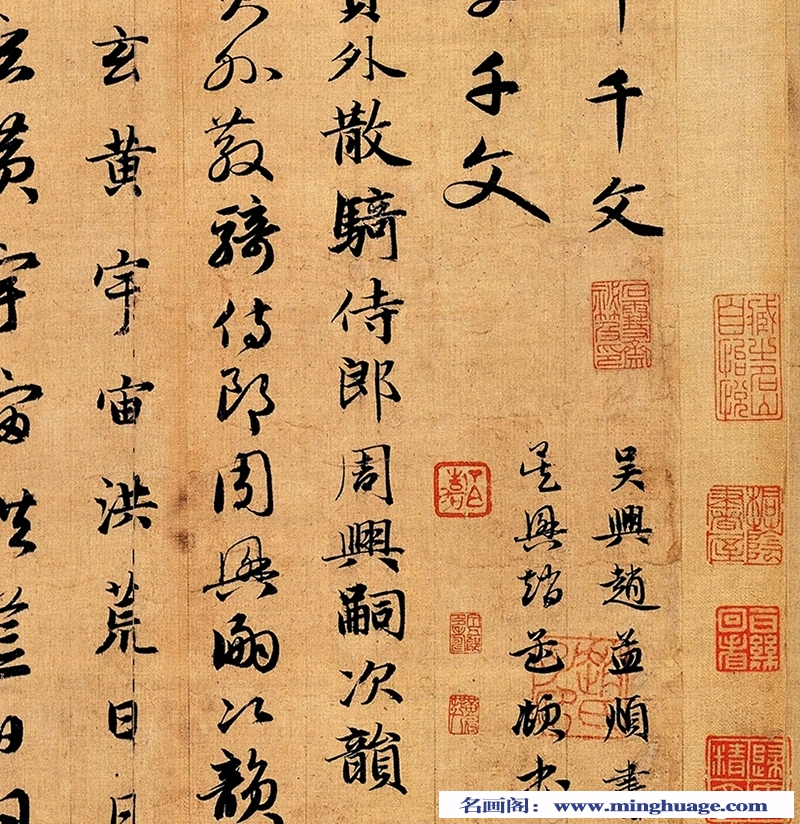 千文
吴興趙孟頫書
千文
吴興趙孟頫書
員外散騎侍郎周興嗣次韻
員外散騎侍郎周興嗣次韻
玄黃宇宙洪荒日月
玄黃宇宙洪荒日月
名画阁：www.minghuage.com